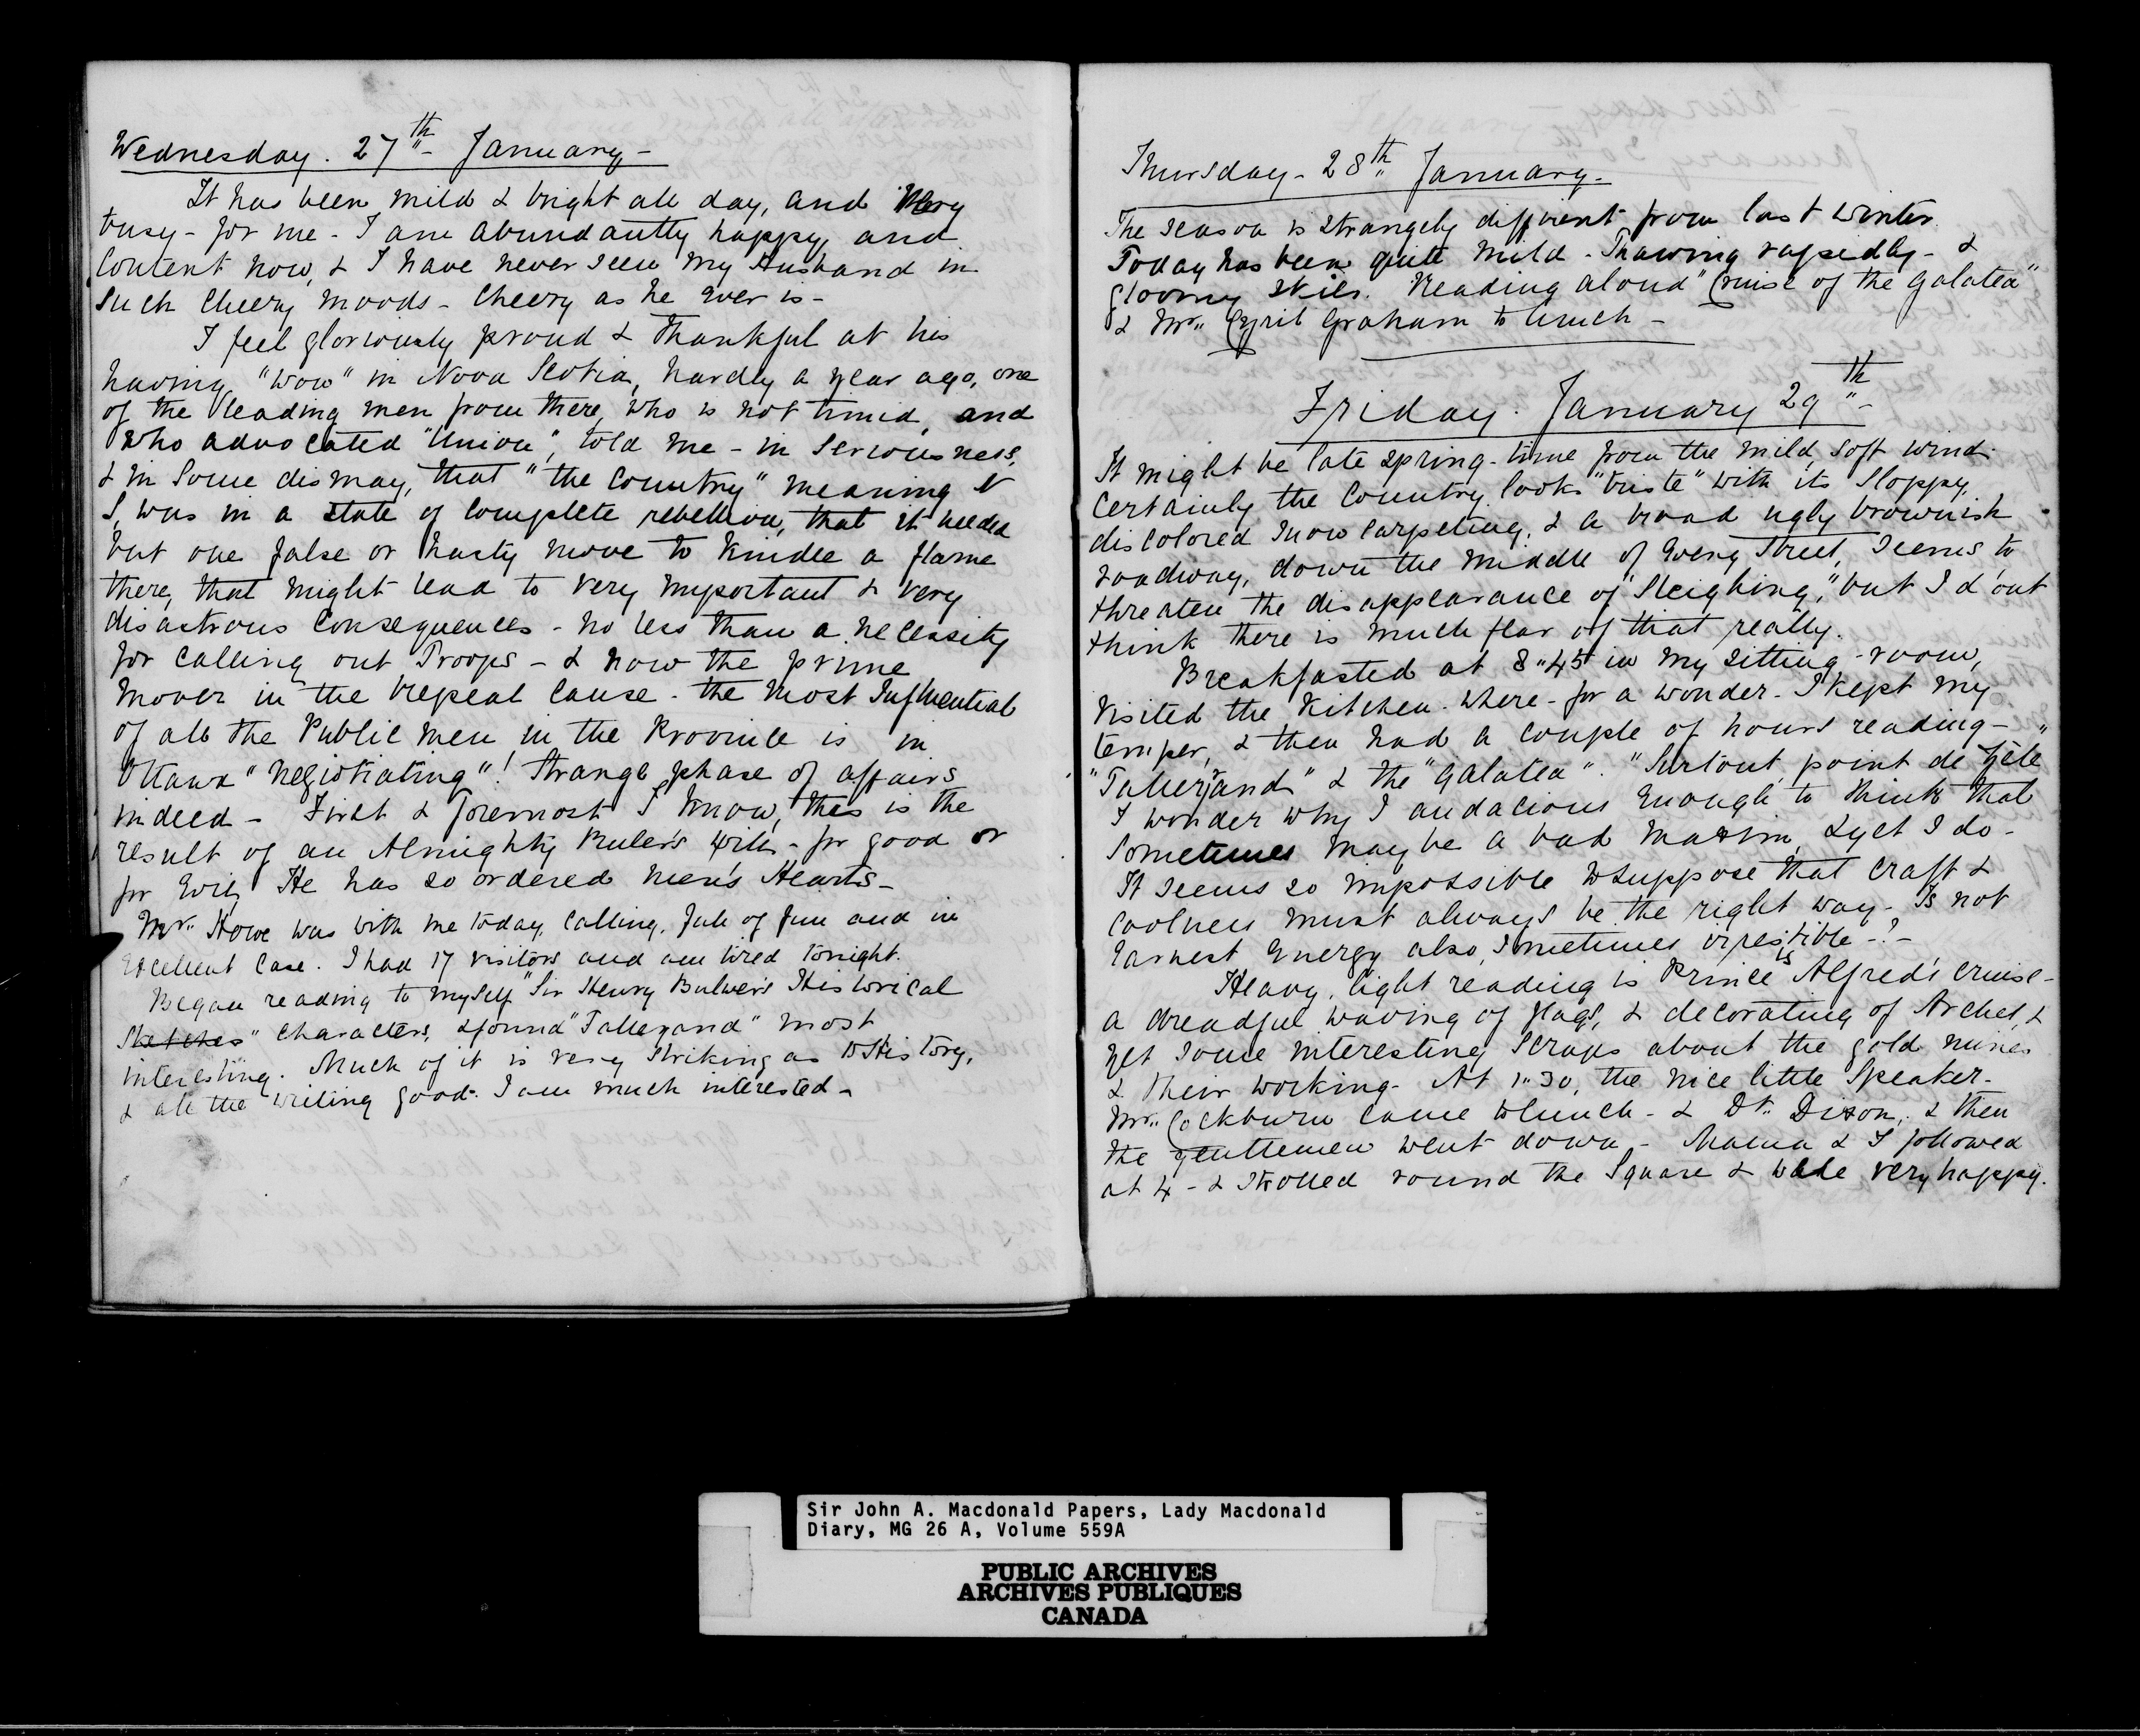 Wednesday. 27th January -
It has been mild & bright all day, and very
busy - for me - I am abundantly happy, and
content now, & I have never seen my Husband in
such cheery moods - cheery as he ever is -
I feel gloriously proud & thankful at his
having "won" in Nova Scotia, hardly a year ago, one
of the leading men from there, who is not timid, and
who advocated "Union", told me - in seriousness,
& in some dismay, that "the Country" meaning N
S, was in a state of complete rebellion, that it needed
but one false or hasty move to kindle a flame
there, that might lead to very important & very
disastrous consequences - no less than a necessity
for calling out Troops - & now the prime
mover in the repeal cause - the most Influential
of all the Public men in the Province is in
Ottawa "negiotiating"! Strange phase of affairs
indeed - First & foremost I know, this is the
result of an Almighty Ruler's will - for good or
for Evil, He has so ordered men's Hearts -
Mr. Howe was with me today, calling, full of fun and in
excellent case. I had 17 visitors and am tired tonight.
Began reading to myself "Sir Henry Bulwer's Historical
Sketches" Characters, & found "Talleyrand" most
interesting. Much of it is very striking as to History,
& all the writing good. I am much interested -
Thursday - 28th January.
The season is strangely different from last winter.
Today has been quite mild - Thawing rapidly - &
gloomy skies. Reading aloud "Cruise of the Galatea"
& Mr. Cyril Graham to lunch -
Friday. January 29th
It might be late spring-time from the mild, soft wind.
Certainly the Country looks "triste" with its sloppy,
discolored snow carpeting, & a broad ugly brownish
roadway, down the middle of Every Street, seems to
threaten the disappearance of "Sleighing", but I d'ont
think there is much fear of that really.
Breakfasted at 8"45 in my sitting-room,
visited the kitchen - where - for a wonder - I kept my
temper, & then had a couple of hours reading -
"Talleyrand" & the "Galatea". "Surtout, point de Zèle"
I wonder why I audacious enough to think that
sometimes may be a bad maxim, & yet I do -
It seems so impossible to suppose that craft &
coolness must always be the right way - Is not
Earnest Energy also, sometimes irresistible -?-
Heavy, light reading is Prince Alfred's cruise -
a dreadful waving of flags, & decorating of Arches, &
yet some interesting scraps about the gold mines
& their working - At 1"30, the nice little Speaker -
Mr. Cockburn came to lunch - & Dr. Dixon, & then
the gentlemen went down - Mama & I followed
at 4 - & strolled round the Square & were very happy.
Sir John A. Macdonald Papers, Lady Macdonald
Diary, MG 26 A, Volume 559A
PUBLIC ARCHIVES
ARCHIVES PUBLIQUES
CANADA